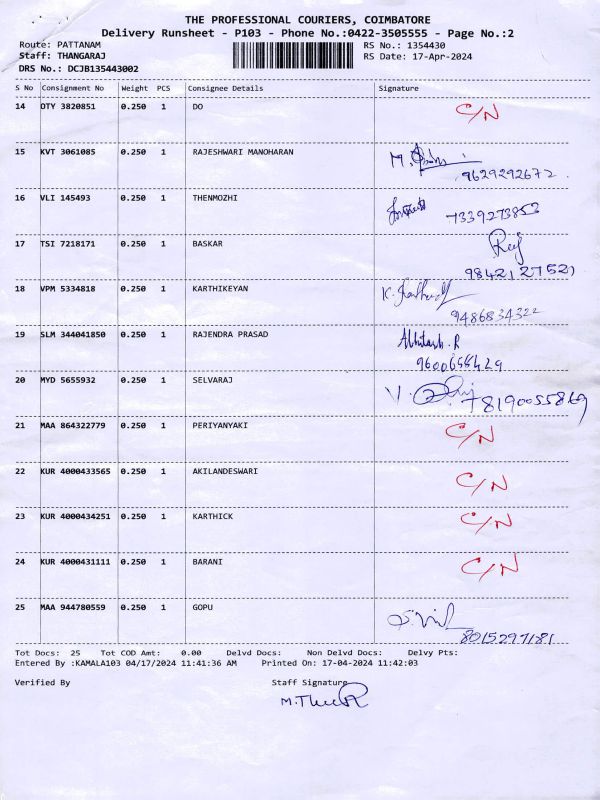 THE PROFESSIONAL COURIERS, COIMBATORE
Delivery Runsheet - P103 - Phone No.:0422-3505555 - Page No.:2
Route: PATTANAM RS No.: 1354430
Staff: THANGARAJ RS Date: 17-Apr-2024
DRS No.: DCJB135443002
S No Consignment No Weight PCS Consignee Details Signature
14 OTY 3820851 0.250 1 DO C/N
15 KVT 3061085 0.250 1 RAJESHWARI MANOHARAN M.
9629292672
16 VLI 145493 0.250 1 THENMOZHI
7339273853
17 TSI 7218171 0.250 1 BASKAR
9842127521
18 VPM 5334818 0.250 1 KARTHIKEYAN K.
9486834322
19 SLM 344041850 0.250 1 RAJENDRA PRASAD
20 MYD 5655932 0.250 1 SELVARAJ V.
78190055869
21 MAA 864322779 0.250 1 PERIYANYAKI C/N
22 KUR 4000433565 0.250 1 AKILANDESWARI C/N
23 KUR 4000434251 0.250 1 KARTHICK C/N
24 KUR 4000431111 0.250 1 BARANI C/N
25 MAA 944780559 0.250 1 GOPU
8015297181
Tot Docs: 25 Tot COD Amt: 0.00 Delvd Docs: Non Delvd Docs: Delvy Pts:
Entered By :KAMALA103 04/17/2024 11:41:36 AM Printed On: 17-04-2024 11:42:03
Verified By Staff Signature